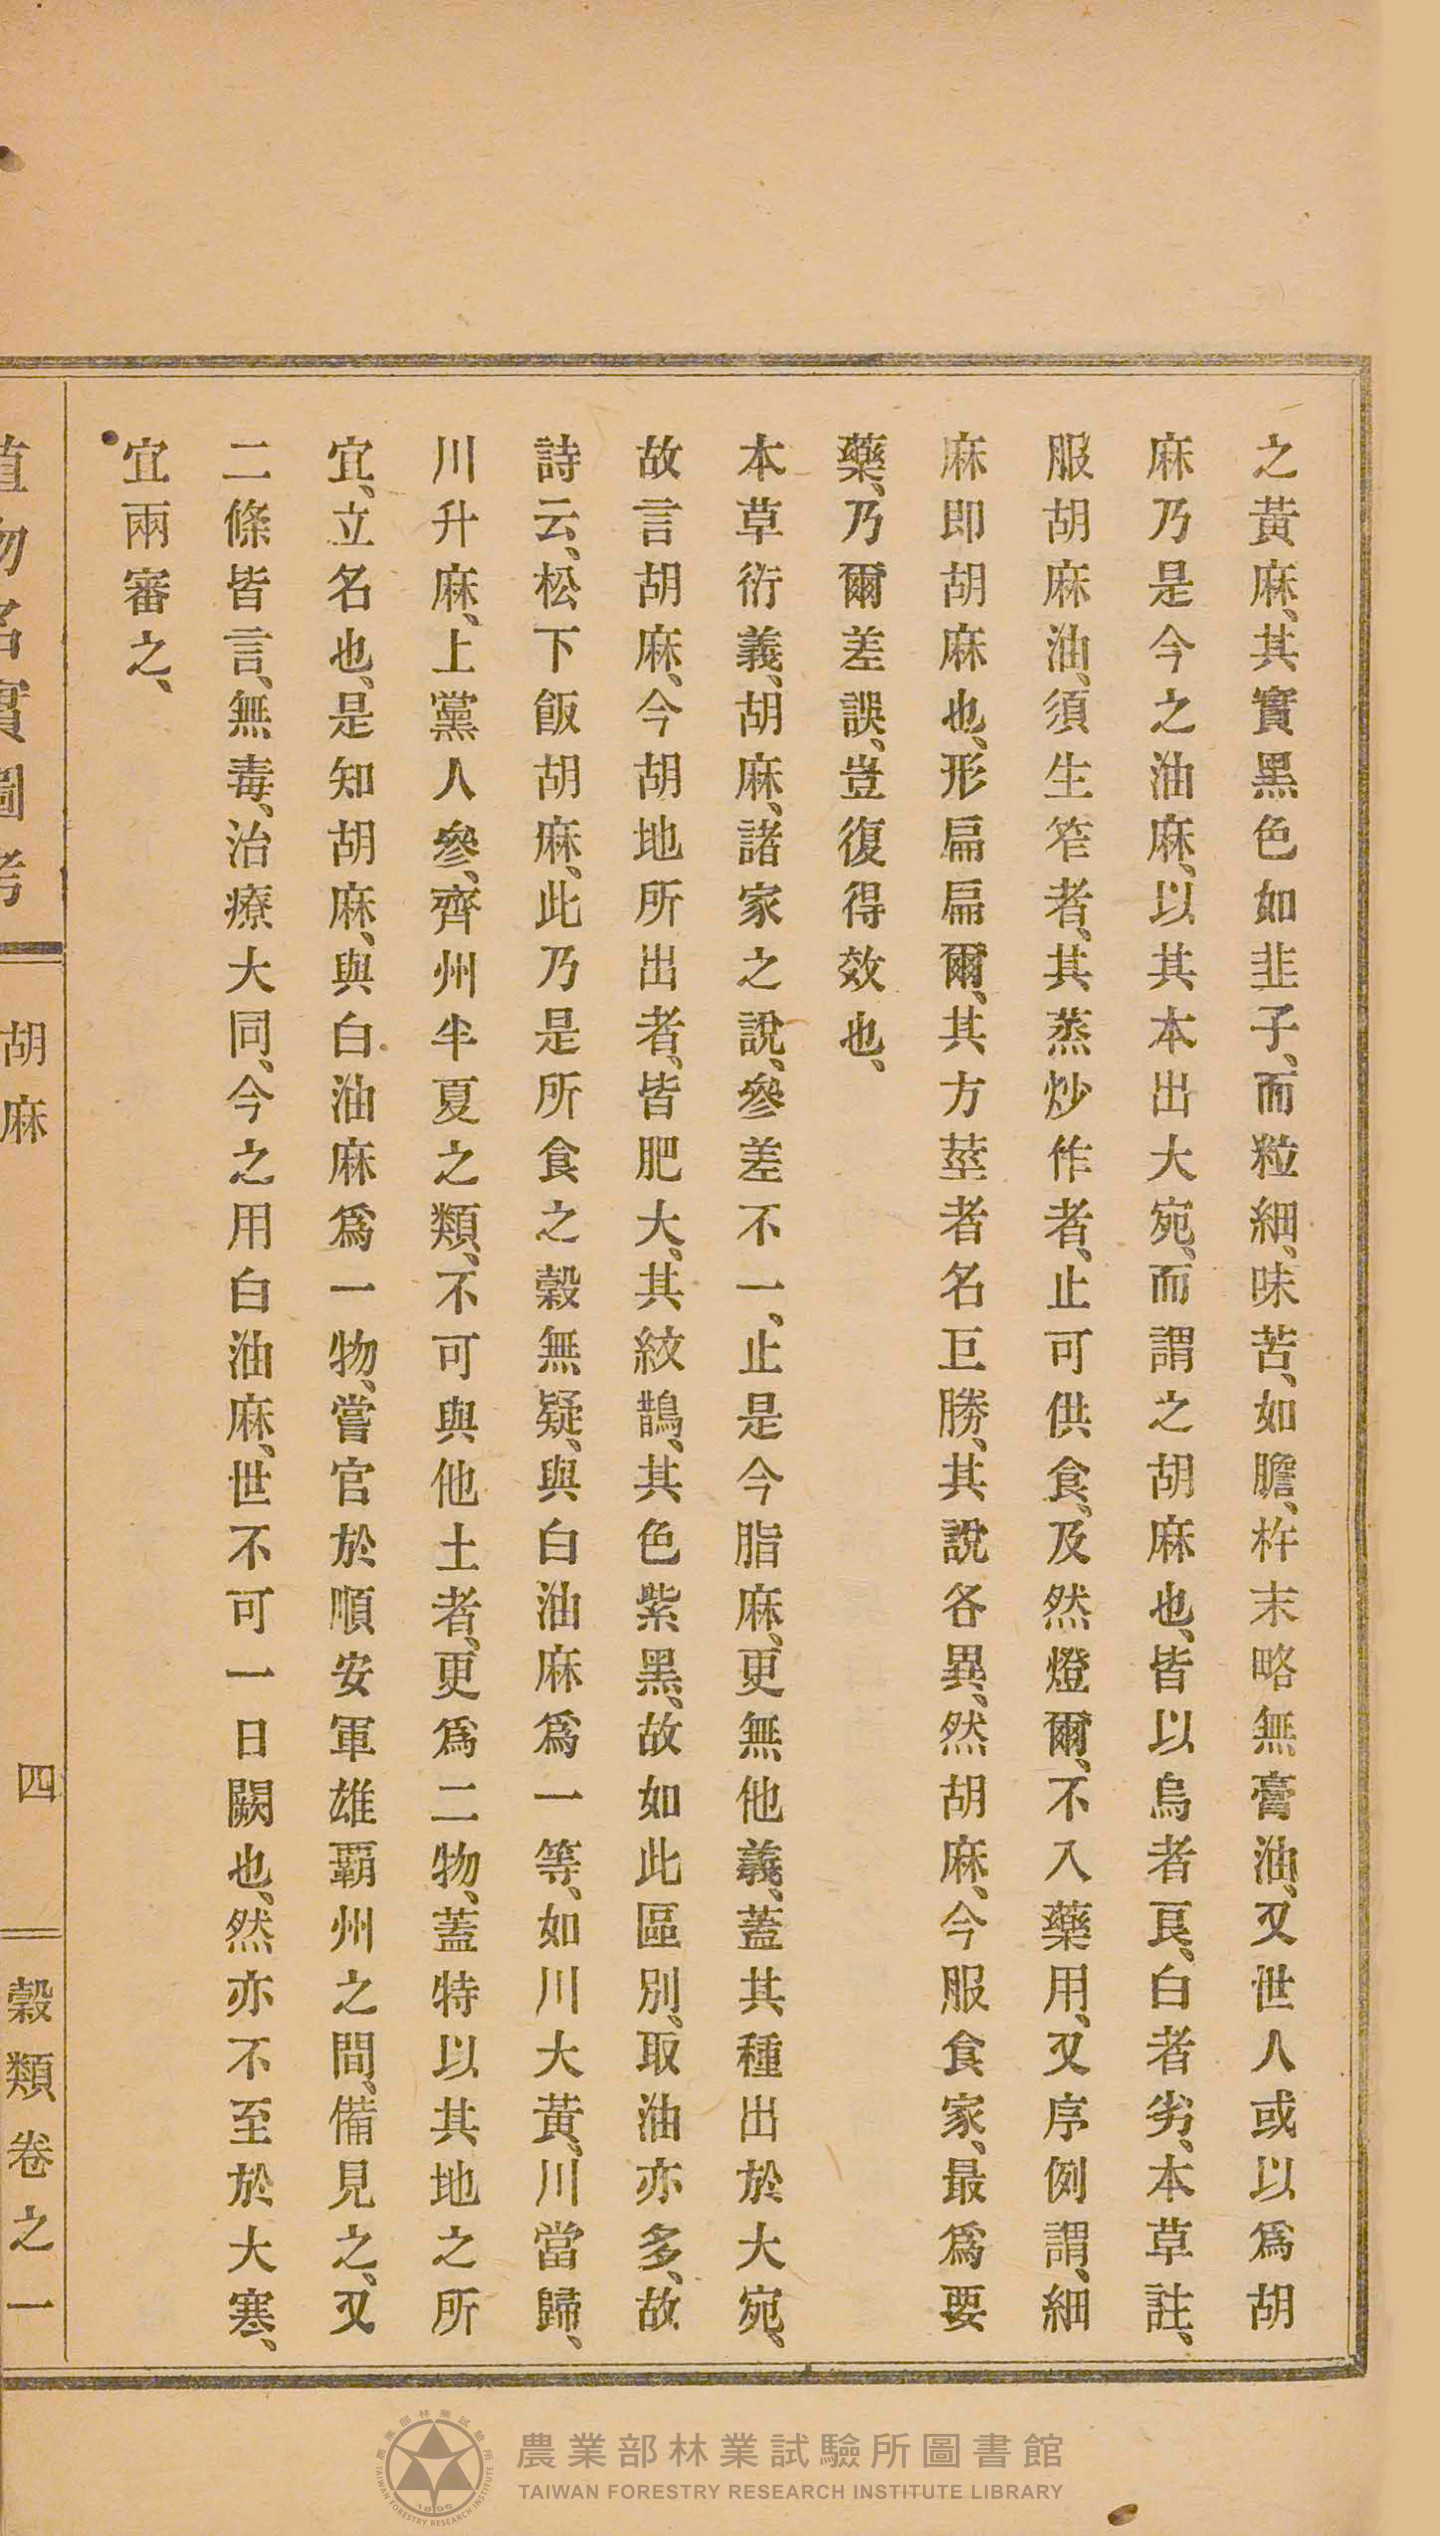 之黃麻、其實黑色如韭子、而粒細、味苦、如膽、杵末略無膏油、又世人或以爲胡
麻乃是今之油麻、以其本出大宛、而謂之胡麻也、皆以烏者良、白者劣、本草註、
服胡麻油、須生笮者、其蒸炒作者、止可供食、及然燈爾、不入藥用、又序例謂、細
麻即胡麻也、形扁扁爾、其方莖者名巨勝、其說各異、然胡麻、今服食家、最爲要
藥、乃爾差誤、豈復得效也、
本草衍義、胡麻、諸家之說、參差不一、止是今脂麻、更無他義、蓋其種出於大宛、
故言胡麻、今胡地所出者、皆肥大、其紋鵲、其色紫黑、故如此區別、取油亦多、故
詩云、松下飯胡麻、此乃是所食之穀無疑、與白油麻爲一等、如川大黃、川當歸、
川升麻、上黨人參、齊州半夏之類、不可與他土者、更爲二物、蓋特以其地之所
宜、立名也、是知胡麻、與白油麻爲一物、嘗官於順安軍雄霸州之間、備見之、又
二條皆言、無毒、治療大同、今之用白油麻、世不可一日闕也、然亦不至於大寒、
宜兩審之、
植物名實圖考 胡麻 四 穀類卷之一
農業部林業試驗所圖書館
TAIWAN FORESTRY RESEARCH INSTITUTE LIBRARY
農業部林業試驗所
TAIWAN FORESTRY RESEARCH INSTITUTE
1896